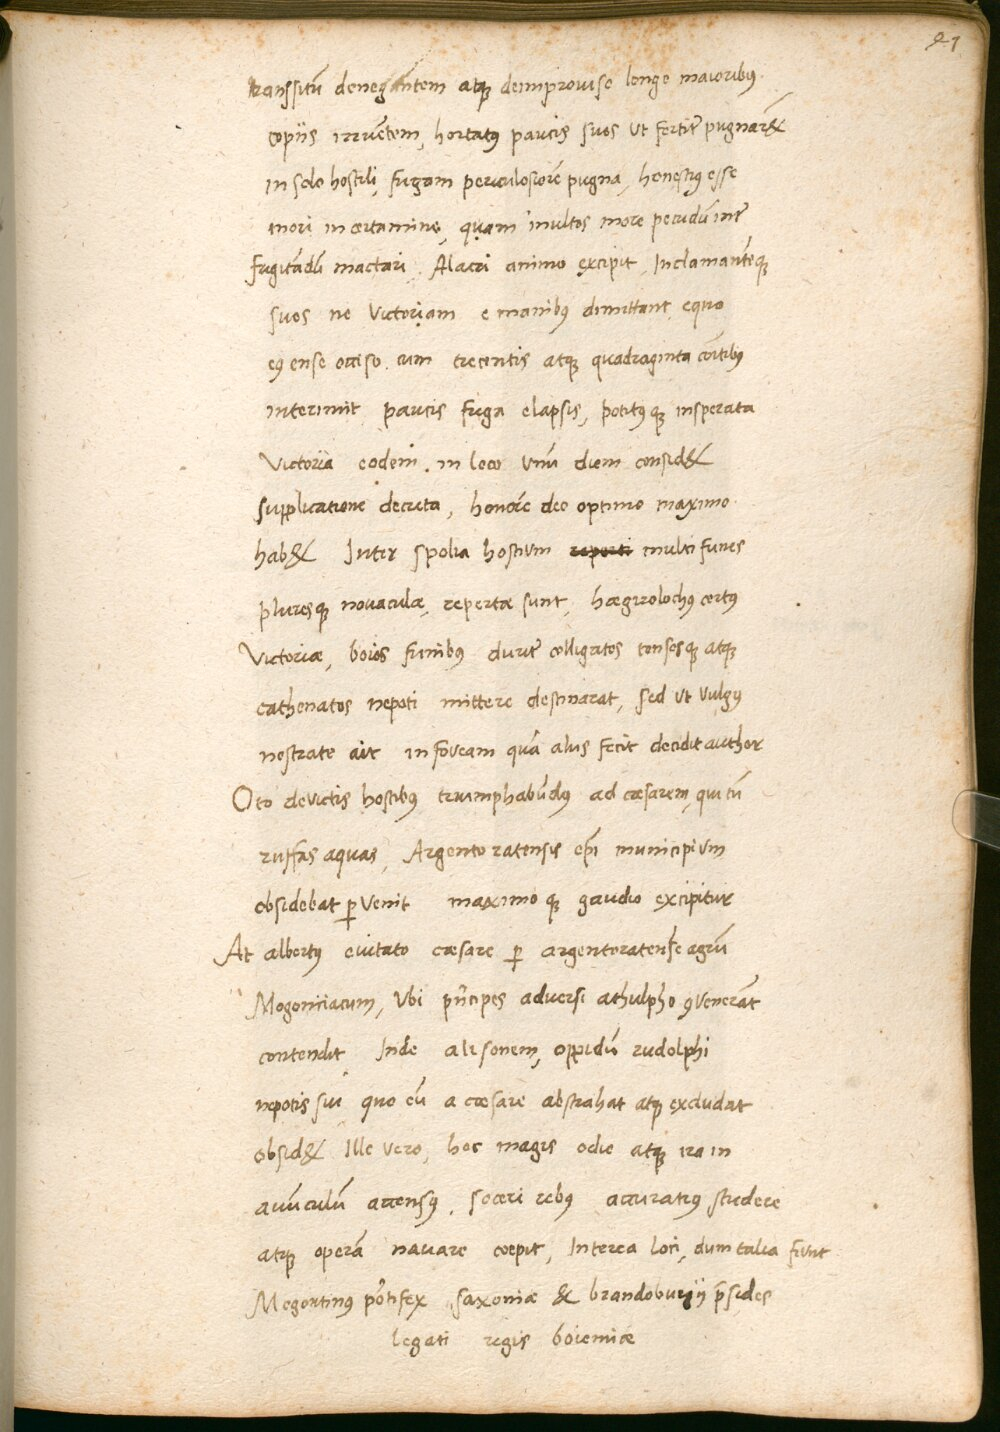 27
transsitū denegantem atq; deimprovise longe maioribꝰ
copiis irruētem, hortatꝰ paucis suos ut fortiť pugnar&
in solo hostili, fugam periculosiorē pugna, honestiꝰ esse
mori in certamine, quam inultos more pecudū inť
fugiēdū mactari. Alacri animo excipit, Inclamanteq;
suos ne Victoriam e manibꝰ dimittant, equo
eꝰ ense occiso cum trecentis atq; quadraginta cōitibꝰ
interimit paucis fuga elapsis, potitꝰ q; insperata
Victoria eodem in loco unū diem consid&
supplicatione decreta, honorē deo optimo maximo
hab& Inter spolia hostium reperti multi funes
pluresq; novaculæ, repertæ sunt, hægirolochꝰ certꝰ
Victoriæ, boios funibꝰ duriť colligatos tonsosq; atq;
cathenatos nepoti mittere destinarat, sed ut vulgꝰ
nostrate ait in foveam quā aliis fecit decidit author
Oto devictis hostibus triumphabūdꝰ ad cæsarem, qui tū
ruffas aquas, Argentoratensis ep̄i municipium
obsidebat ꝑvenit maximo q; gaudio excipitur
At albertꝰ evitato cæsare ꝑ argentoratensē agrū
Mogonciacum, Ubi pn̄cipes adversi athulpho ꝯvenerāt
contendit Inde alisonem, oppidū rudolphi
nepotis sui quo eū a cæsare abstrahat atq; excludat
obsid& Ille vero, hoc magis odio atq; ira in
avūculū accensꝰ, soceri rebꝰ accuratiꝰ studere
atq; operā navare coepit, Interea loci, dum talia fiunt
Mogontinꝰ pōtifex saxoniæ & brandoburgii p̄sides
legati regis boiemiæ